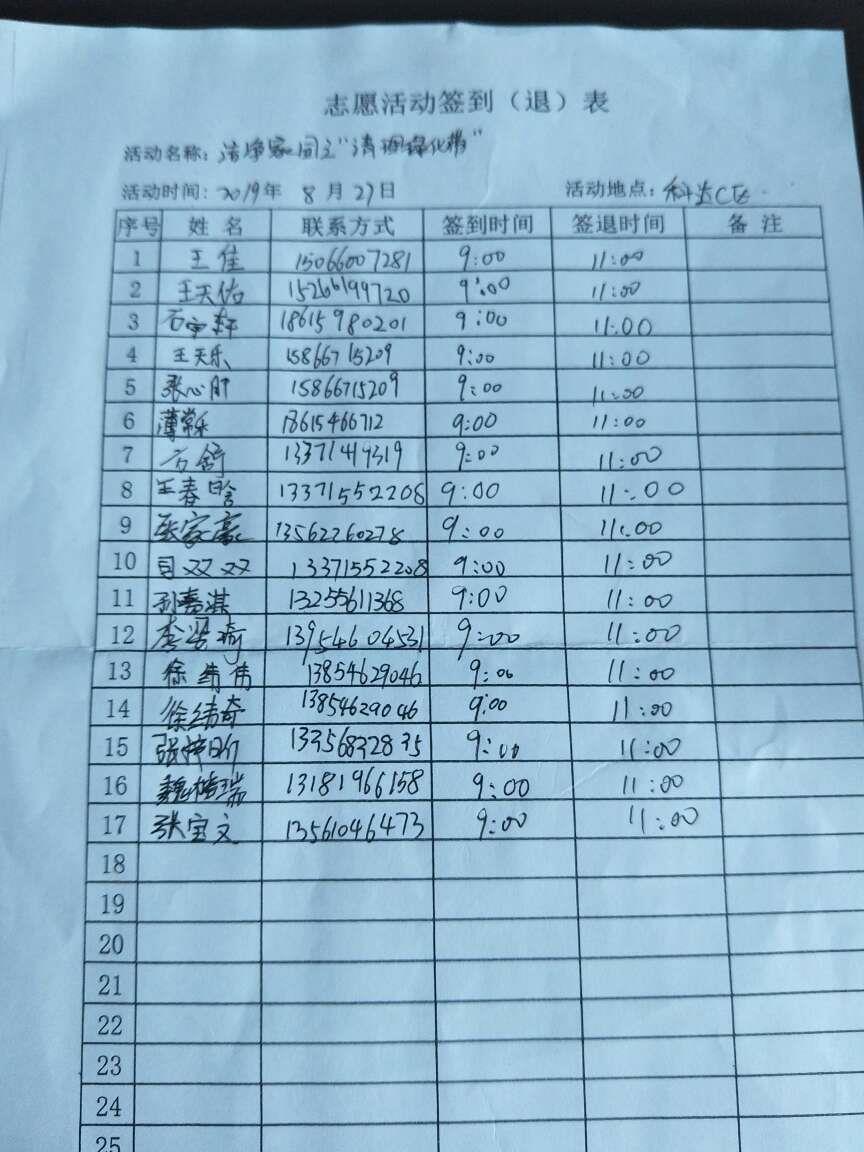 志愿活动签到（退）表
活动名称：洁净家园之“清理绿化带”
活动时间：2019年 8月27日 活动地点：科达
序号 姓名 联系方式 签到时间 签退时间 备注
1 王佳 15066007281 9:00 11:00
2 王天佑 15266199720 9:00 11:00
3 18615980201 9:00 11:00
4 王天乐 15866715209 9:00 11:00
5 15866715209 9:00 11:00
6 18615466712 9:00 11:00
7 石舒 13371419319 9:00 11:00
8 王春晗 13371552208 9:00 11:00
9 张家豪 13562260278 9:00 11:00
10 司双双 13371552208 9:00 11:00
11 孙嘉淇 13255611368 9:00 11:00
12 13954604531 9:00 11:00
13 徐 13854629046 9:00 11:00
14 徐纬奇 13854629046 9:00 11:00
15 13356832835 9:00 11:00
16 13181966158 9:00 11:00
17 张宝文 13561046473 9:00 11:00
18
19
20
21
22
23
24
25